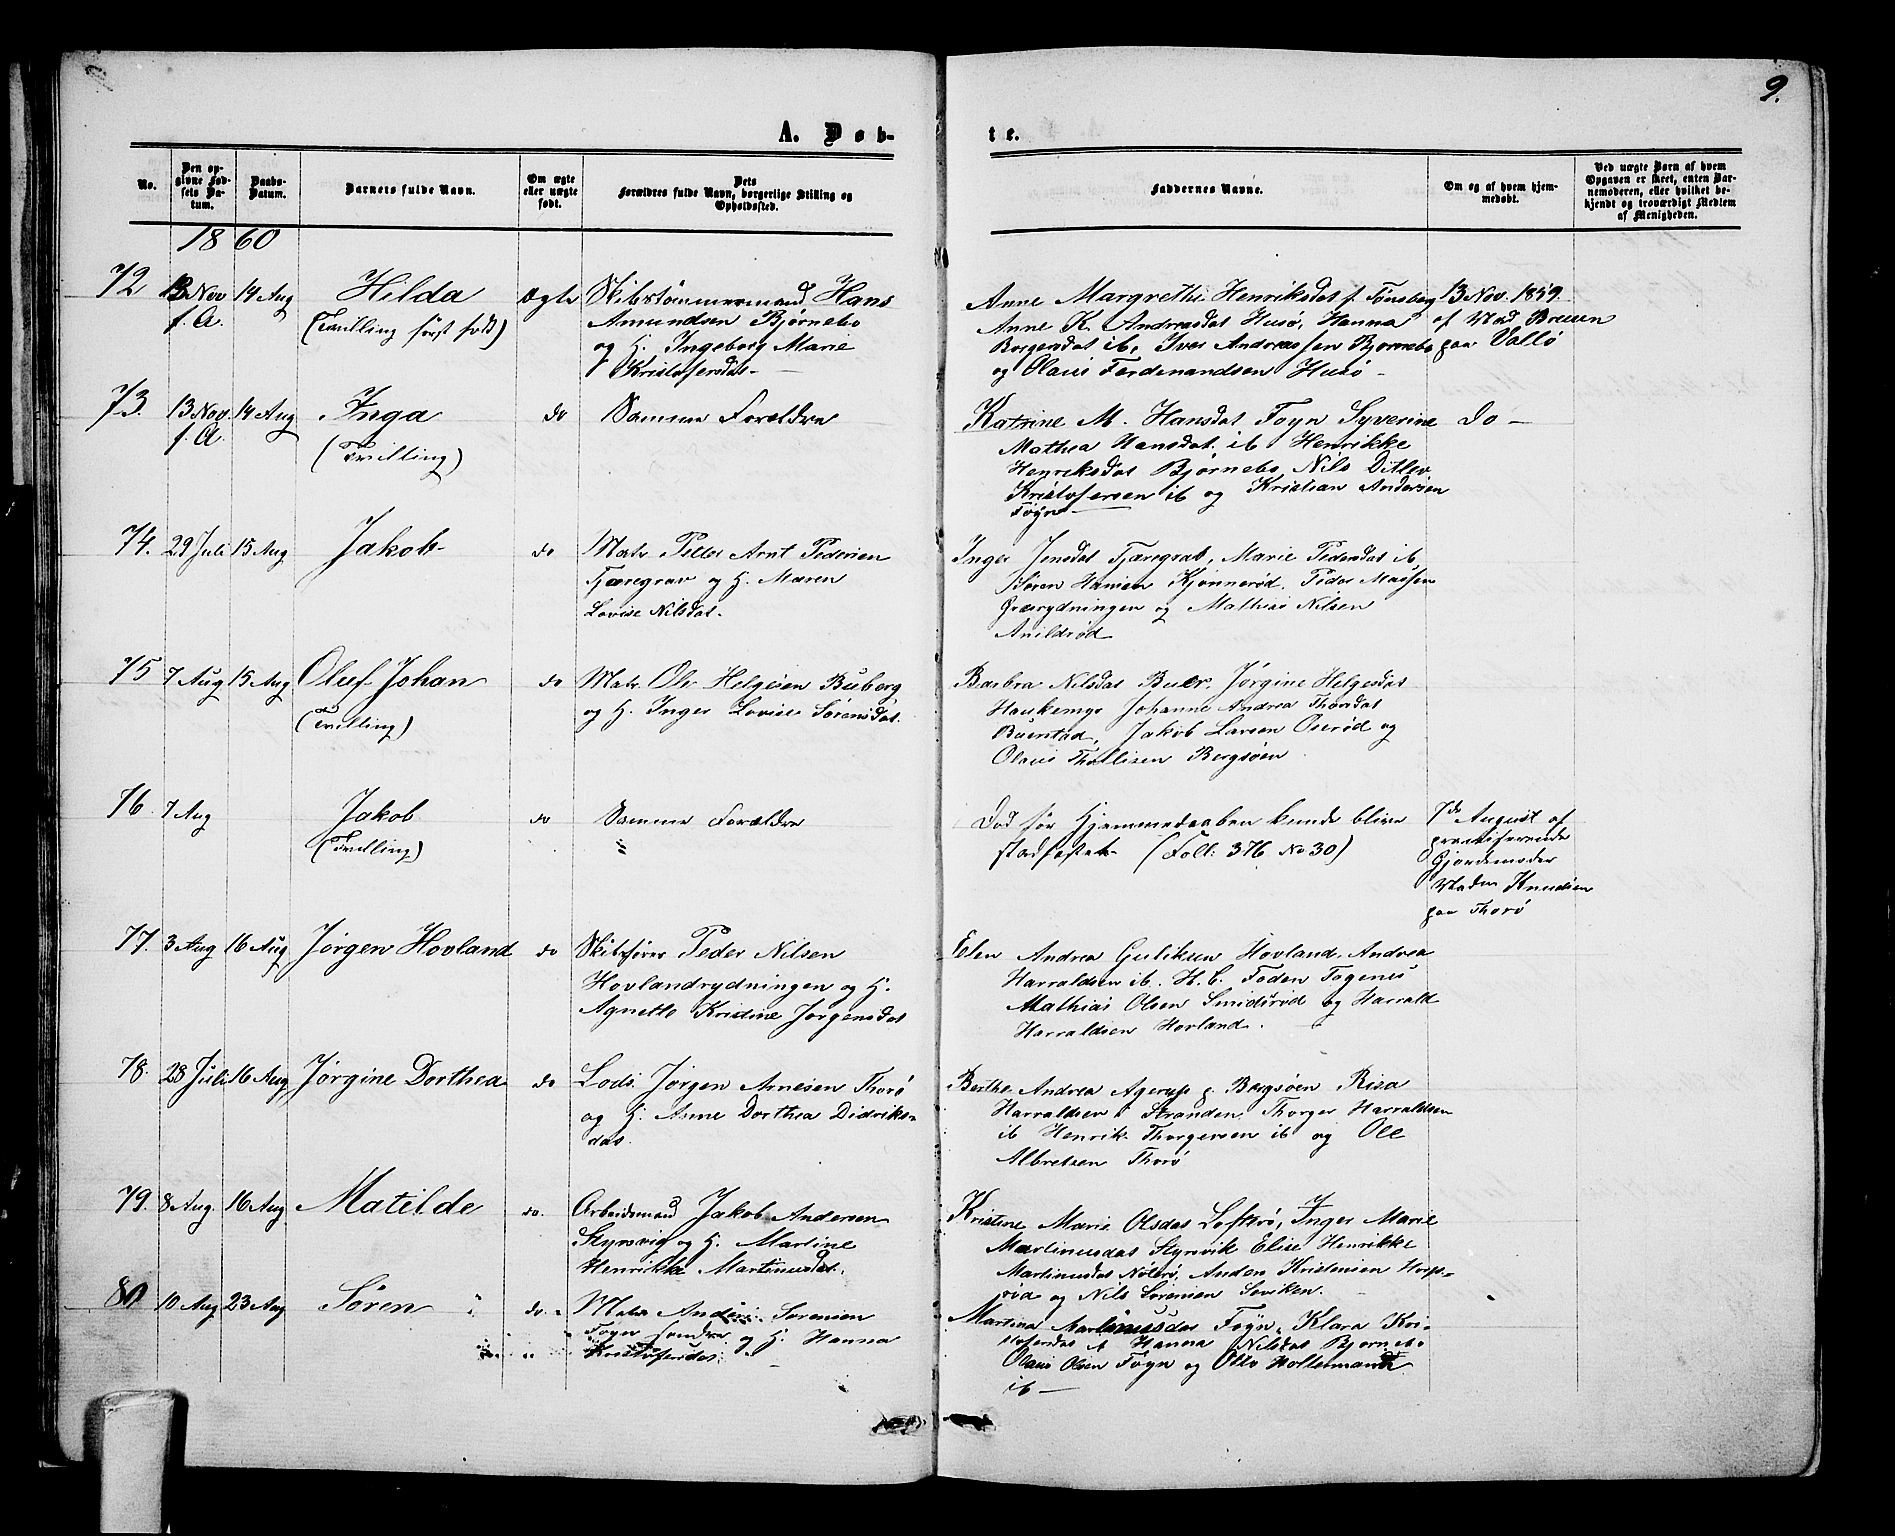 9.
A. Døb-
te.
No.
Den op-
givne Fød-
sels Da-
tum.
Daabs-
Datum.
Barnets fulde Navn.
Om ægte
eller uægte
født.
Dets
Forældres fulde Navn, borgerlige Stilling og
Opholdssted.
Faddernes Navne.
Om og af hvem hjem-
medøbt.
Ved uægte Børn af hvem
Opgaven er skeet, enten Bar-
nemoderen, eller hvilket be-
kjendt og troværdigt Medlem
af Menigheden.
1860
72 13 Nov 14 Aug Hilda ægte Skibstømmermand Hans
f. A. (Tvilling først født) Amundsen Bjørnebo
og H. Ingeborg Marie
Kristofersdat.
Anne Margrethe Henriksdat f. Tønsberg
Anne K. Andreasdat Husø, Hanna
Borgersdat ib, Iver Andreassen Bjørnebo
og Olaus Ferdenandsen Husø
13 Nov. 1859.
af Mad Breien
paa Vallø
73. 13 Nov. 14 Aug Inga do Samme Forældre
f. A. (Tvilling)
Katrine M. Hansdat Foyn Syverine
Mathea Hansdat ib Henrikke
Henriksdat Bjørnebo, Nils Ditlev
Kristofersen ib og Kristian Andersen
Føyn
Do
74. 29 Juli 15 Aug Jakob do Matr Peller Arnt Pedersen
Tjæregrav og H. Maren
Lovise Nilsdat.
Inger Jensdat Tjæregrav, Marie Pedersdat ib
Søren Hansen Kjønnerød. Peder
og Mathias Nilsen
Arildrød
75 7 Aug 15 Aug Oluf Johan do Matr. Ole Helgesen Buberg
(Tvilling) og H. Inger Lovise Sørensdat.
Barbra Nilsdat Buer, Jørgine Helgesdat
Haukemyr Johanne Andrea Thordat
Buerstad, Jakob Larsen Oserød og
Olaus Thollisen Bergsøen
76. 7 Aug Jakob do Samme Forældre
(Tvilling)
Død før Hjemmedaaben kunde blive
stadfæstet (Foll: 376 No 30)
7de August af
practiserende
Gjordemoder
Maden Knudsen
paa Thorø
77. 3 Aug 16 Aug Jørgen Hovland do Skibsfører Peder Nilsen
Hovlandrydningen og H.
Agnette Kristine Jørgensdat
Elen Andrea Guliksen Hovland, Andrea
Harraldsen ib. H. C. Foden Fagenes
Mathias Olsen Smidsrød og Harrald
Harraldsen Hovland.
78. 28 Juli 16 Aug Jørgine Dorthea do Lods. Jørgen Arnesen Thorø
og H: Anne Dorthea Didriks-
dat.
Berthe Andrea Agerup p Bergsøen Risa
Harraldsen Stranden, Thorger Harraldsen
ib Henrik Thorgersen ib og Ole
Albretsen Thorø
79. 8 Aug. 16 Aug. Matilde do. Arbeidsmand Jakob Andersen
Styrsvig og H. Martine
Henrikke Martinusdat.
Kristine Marie Olsdat Loftsrø, Inger Marie
Martinusdat Styrsvik Elise Henrikke
Martinusdat Nøterø, Anders Kristensen
og Nils Sørensen
80 10 Aug 23 Aug Søren do. Matr Anders Sørensen
Foyn søndre og H. Hanna
Kristofersdat.
Martina Martinusdat Føyn, Klara Kri-
stofersdat ib Hanna Nilsdat Bjørnebo
Olaus Olsen Føyn og Otto
ib